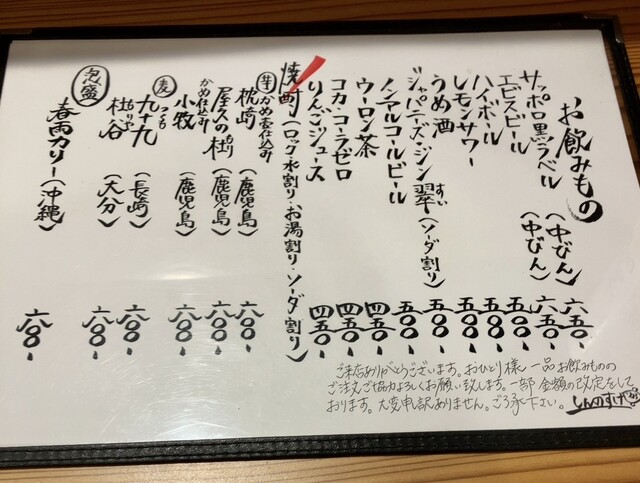 お飲みもの
サッポロ黒ラベル（中びん）六五〇
エビスビール（中びん）六五〇
ハイボール 五〇〇
レモンサワー 五〇〇
うめ酒 五〇〇
ジャパニーズ・ジン翠（ソーダ割り）五〇〇
すい
ノンアルコールビール 五〇〇
ウーロン茶 四五〇
コカ・コーラゼロ 四五〇
りんごジュース 四五〇
焼酎（ロック・水割り・お湯割り・ソーダ割り）
芋 かめ壺仕込み
枕崎（鹿児島）六〇〇
屋久の杜（鹿児島）六〇〇
かめ仕込み
小牧（鹿児島）六〇〇
麦
つくも
九十九（長崎）六〇〇
杜谷（大分）六〇〇
泡盛
春雨カリー（沖縄）六〇〇
ご来店ありがとうございます。おひとり様 一品お飲みものの
ご注文ご協力よろしくお願い致します。一部 金額の改定をして
おります。大変申し訳ありません。ご了承下さい。
しんのすけ